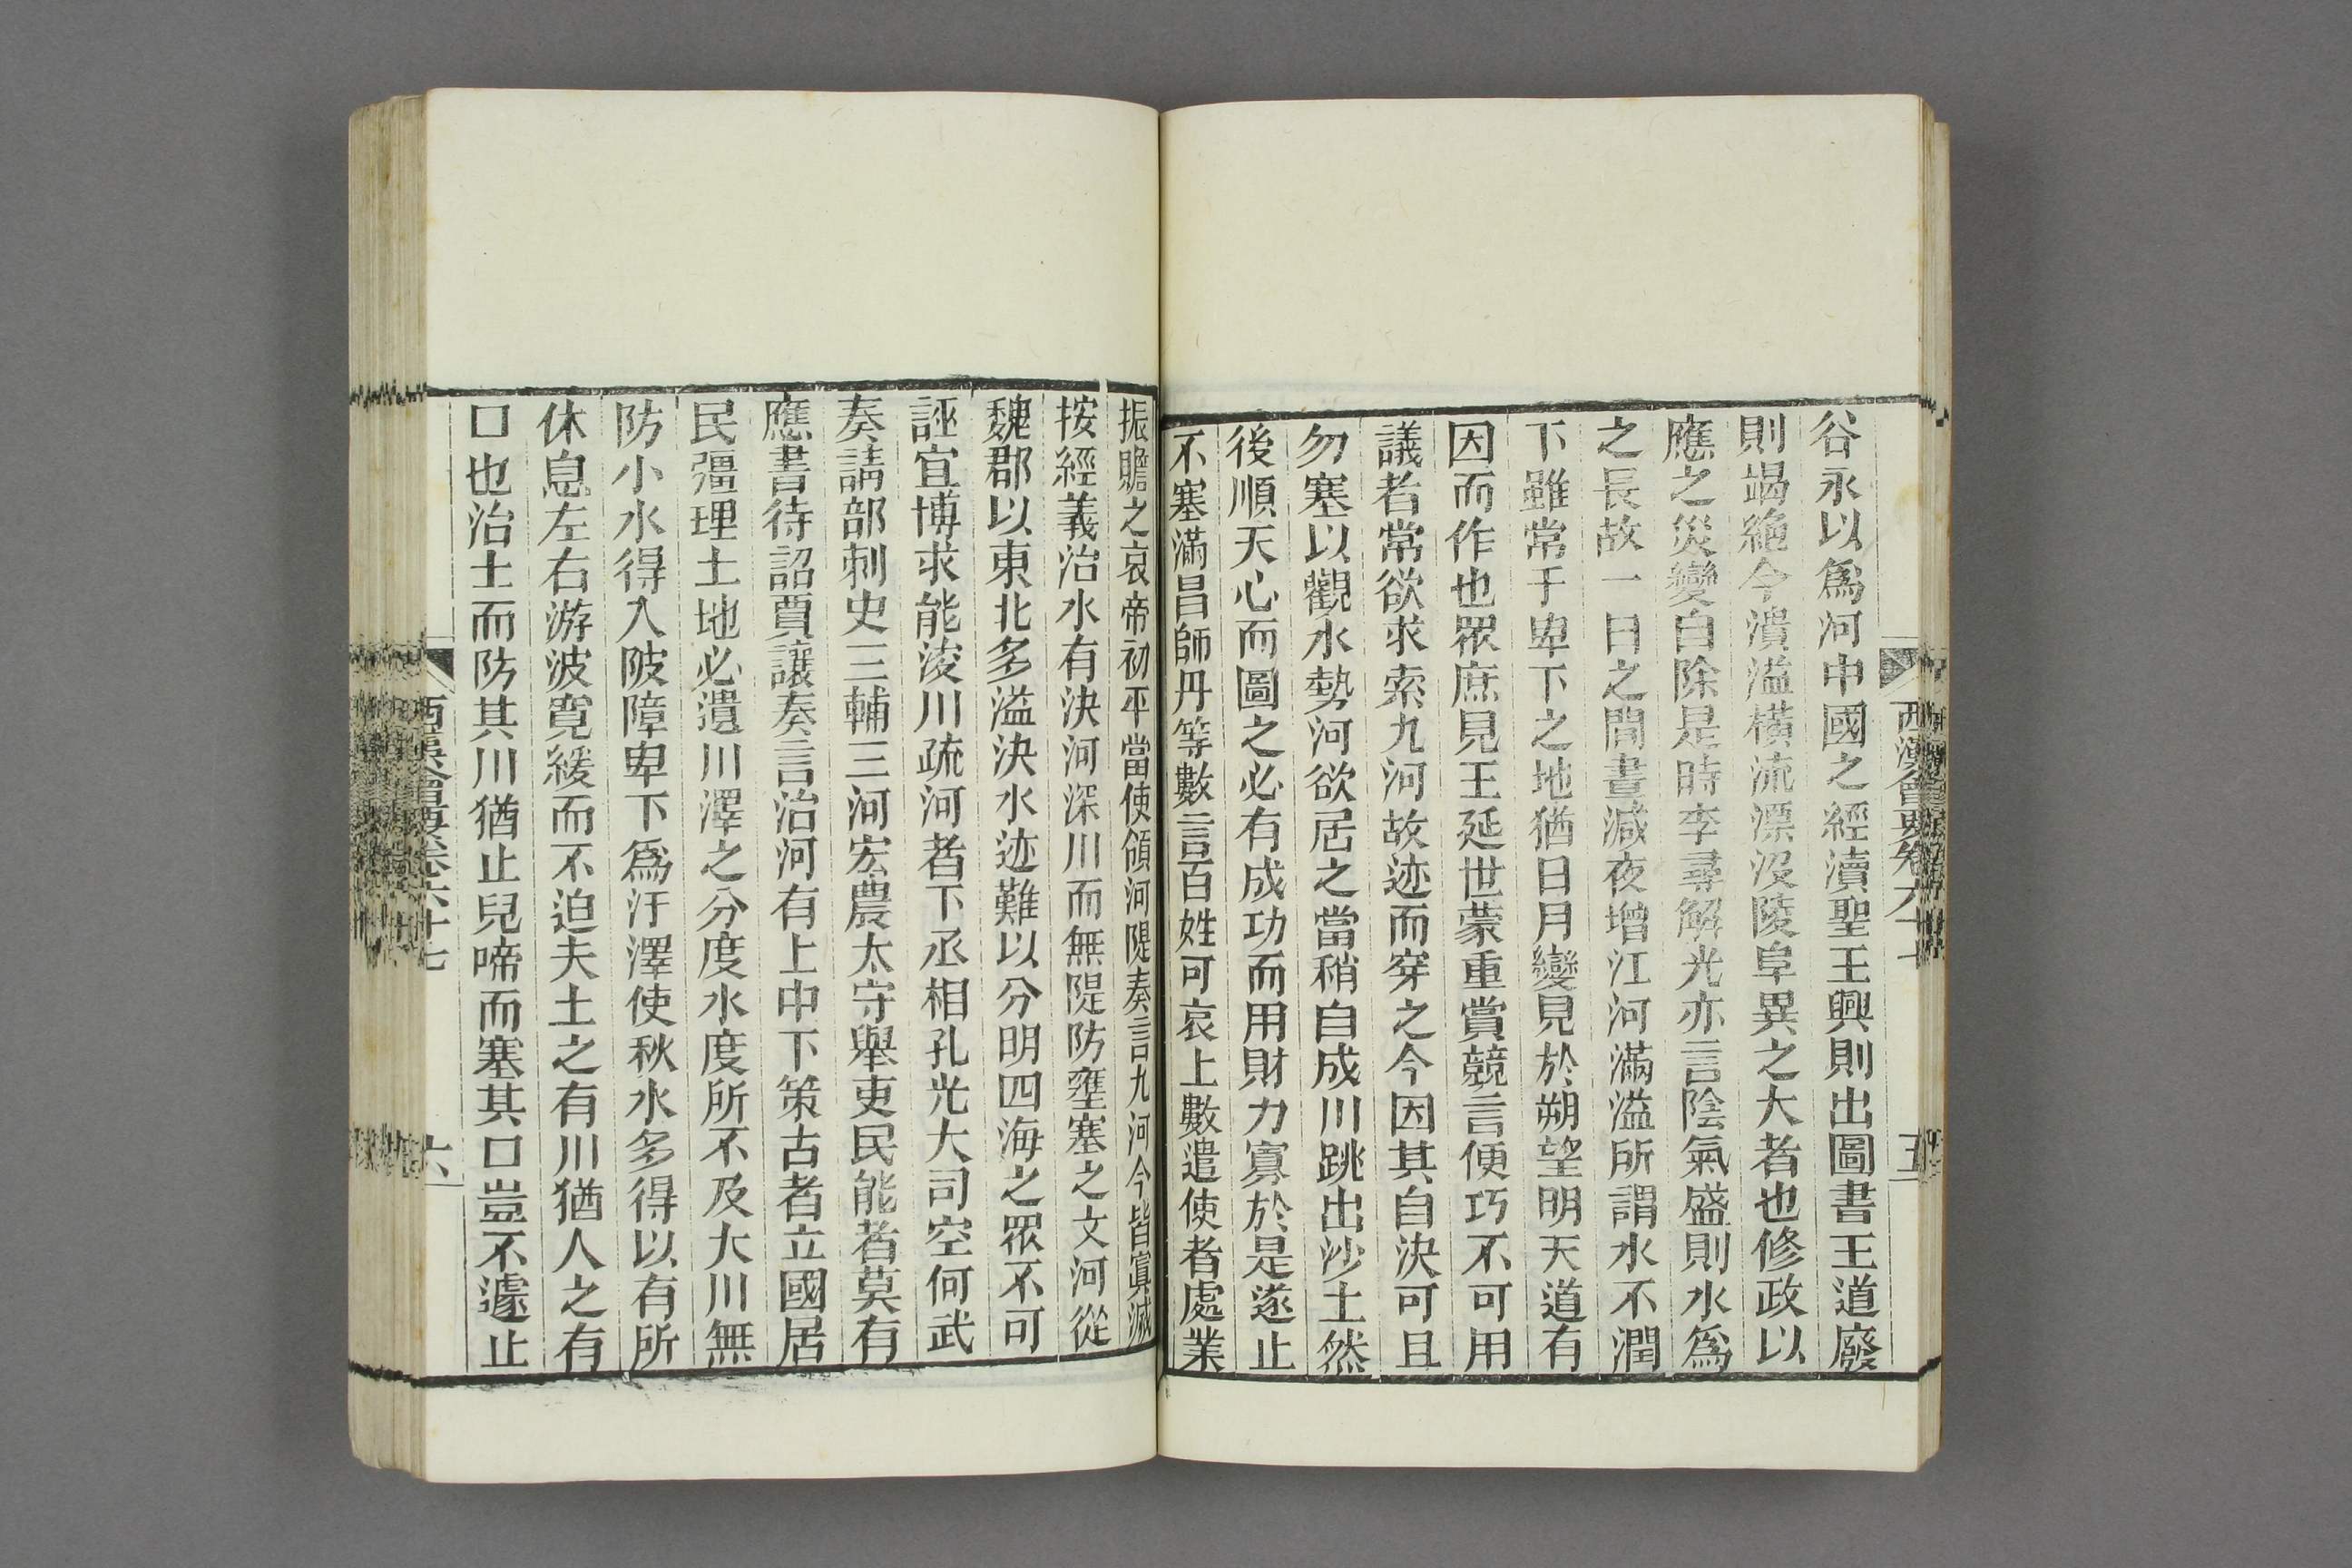 西漢會要卷六十七
五
谷永以爲河中國之經瀆聖王興則出圖書王道廢
則竭絶今潰溢橫流漂沒陵阜異之大者也修政以
應之災變自除是時李尋解光亦言陰氣盛則水爲
之長故一日之間晝減夜增江河滿溢所謂水不潤
下雖常于卑下之地猶日月變見於朔望明天道有
因而作也眾庶見王延世蒙重賞競言便巧不可用
議者常欲求索九河故迹而穿之今因其自決可且
勿塞以觀水勢河欲居之當稍自成川跳出沙土然
後順天心而圖之必有成功而用財力寡於是遂止
不塞滿昌師丹等數言百姓可哀上數遣使者處業
振贍之哀帝初平當使領河隄奏言九河今皆寘滅
按經義治水有決河深川而無隄防壅塞之文河從
魏郡以東北多溢決水迹難以分明四海之眾不可
誣宜博求能浚川疏河者下丞相孔光大司空何武
奏請部刺史三輔三河宏農太守舉吏民能者莫有
應書待詔賈讓奏言治河有上中下策古者立國居
民彊理土地必遺川澤之分度水度所不及大川無
防小水得入陂障卑下爲汙澤使秋水多得以有所
休息左右游波寬緩而不迫夫土之有川猶人之有
口也治土而防其川猶止兒啼而塞其口豈不遽止
西漢會要卷六十七
六